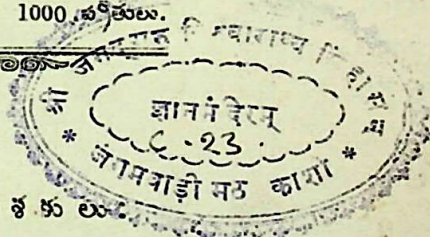 1000 ప్రతులు.
श्री जगद्गुरु विश्वाराध्य
ज्ञानमंदिरम्
C-23.
* जंगमवाड़ी मठ काशी *
శకులు.